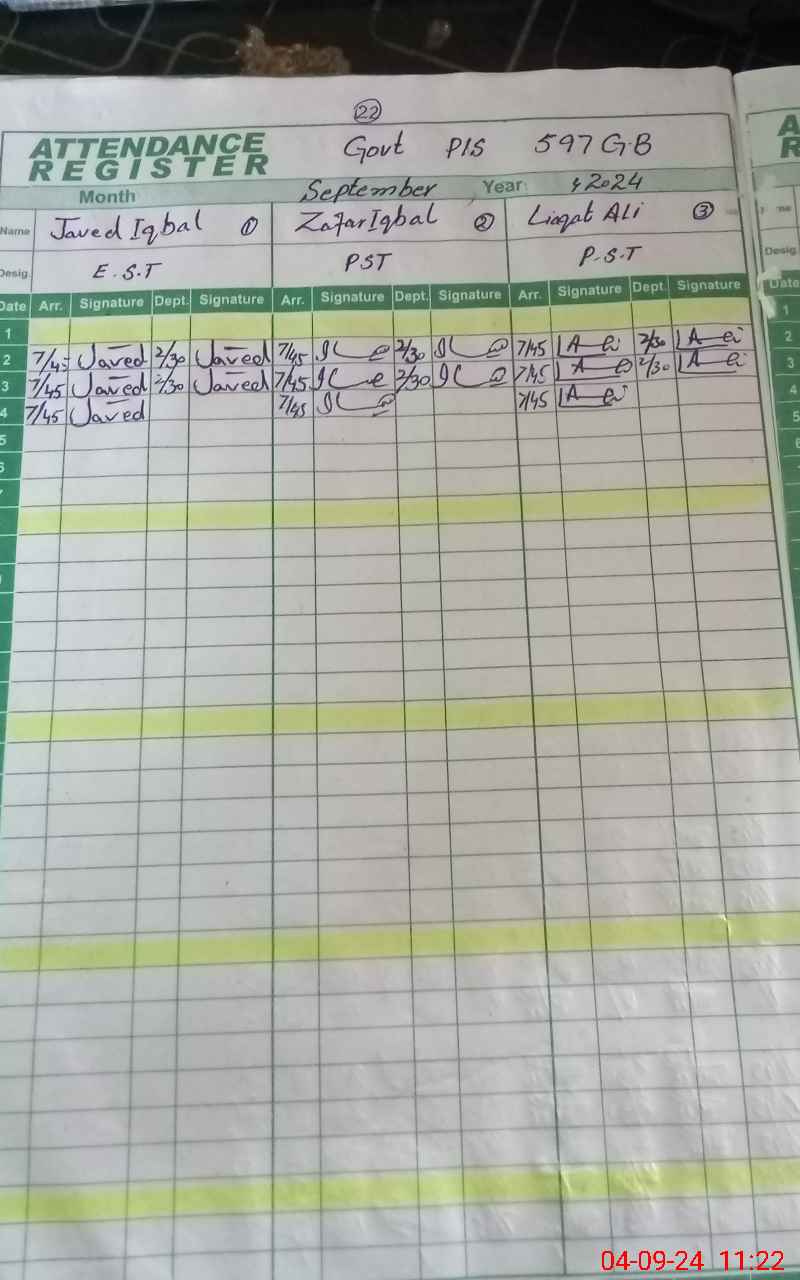 22
ATTENDANCE Govt P/S 597 GB
REGISTER
Month September Year: 2024
Name Javed Iqbal 1 Zafar Iqbal 2 Liaqat Ali 3
Desig. E.S.T PST P.S.T Desig.
Date Arr. Signature Dept. Signature Arr. Signature Dept. Signature Arr. Signature Dept. Signature Date
1 1
2 7/45 Javed 2/30 Javed 7/45 2/30 7/45 2/30 2
3 7/45 Javed 2/30 Javed 7/45 2/30 7/45 2/30 3
4 7/45 Javed 7/45 7/45 4
5 5
6 6
04-09-24 11:22